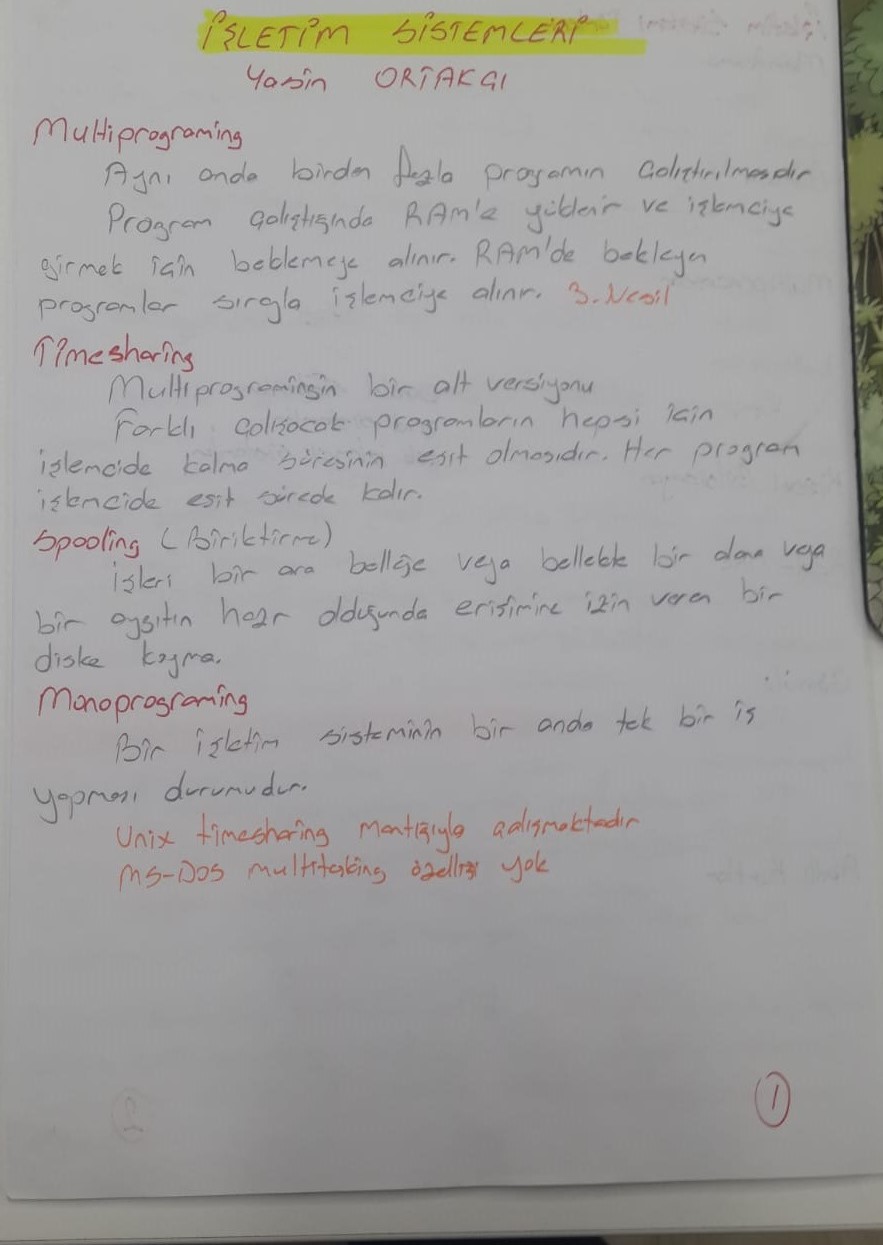 İŞLETİM SİSTEMLERİ
Yasin ORTAKCI
Multiprograming
Aynı anda birden fazla programın çalıştırılmasıdır
Program çalıştığında RAM'e yüklenir ve işlemciye
girmek için beklemeye alınır. RAM'de bekleyen
programlar sırayla işlemciye alınır. 3. Nesil
Timesharing
Multiprogramingin bir alt versiyonu
Farklı çalışacak programların hepsi için
işlemcide kalma süresinin eşit olmasıdır. Her program
işlemcide eşit sürede kalır.
Spooling (Biriktirme)
İşleri bir ara belleğe veya bellekte bir alana veya
bir aygıtın hazır olduğunda erişimine izin veren bir
diske koyma.
Monoprograming
Bir işletim sisteminin bir anda tek bir iş
yapması durumudur.
Unix timesharing mantığıyla çalışmaktadır
MS-DOS multitasking özelliği yok
1
2